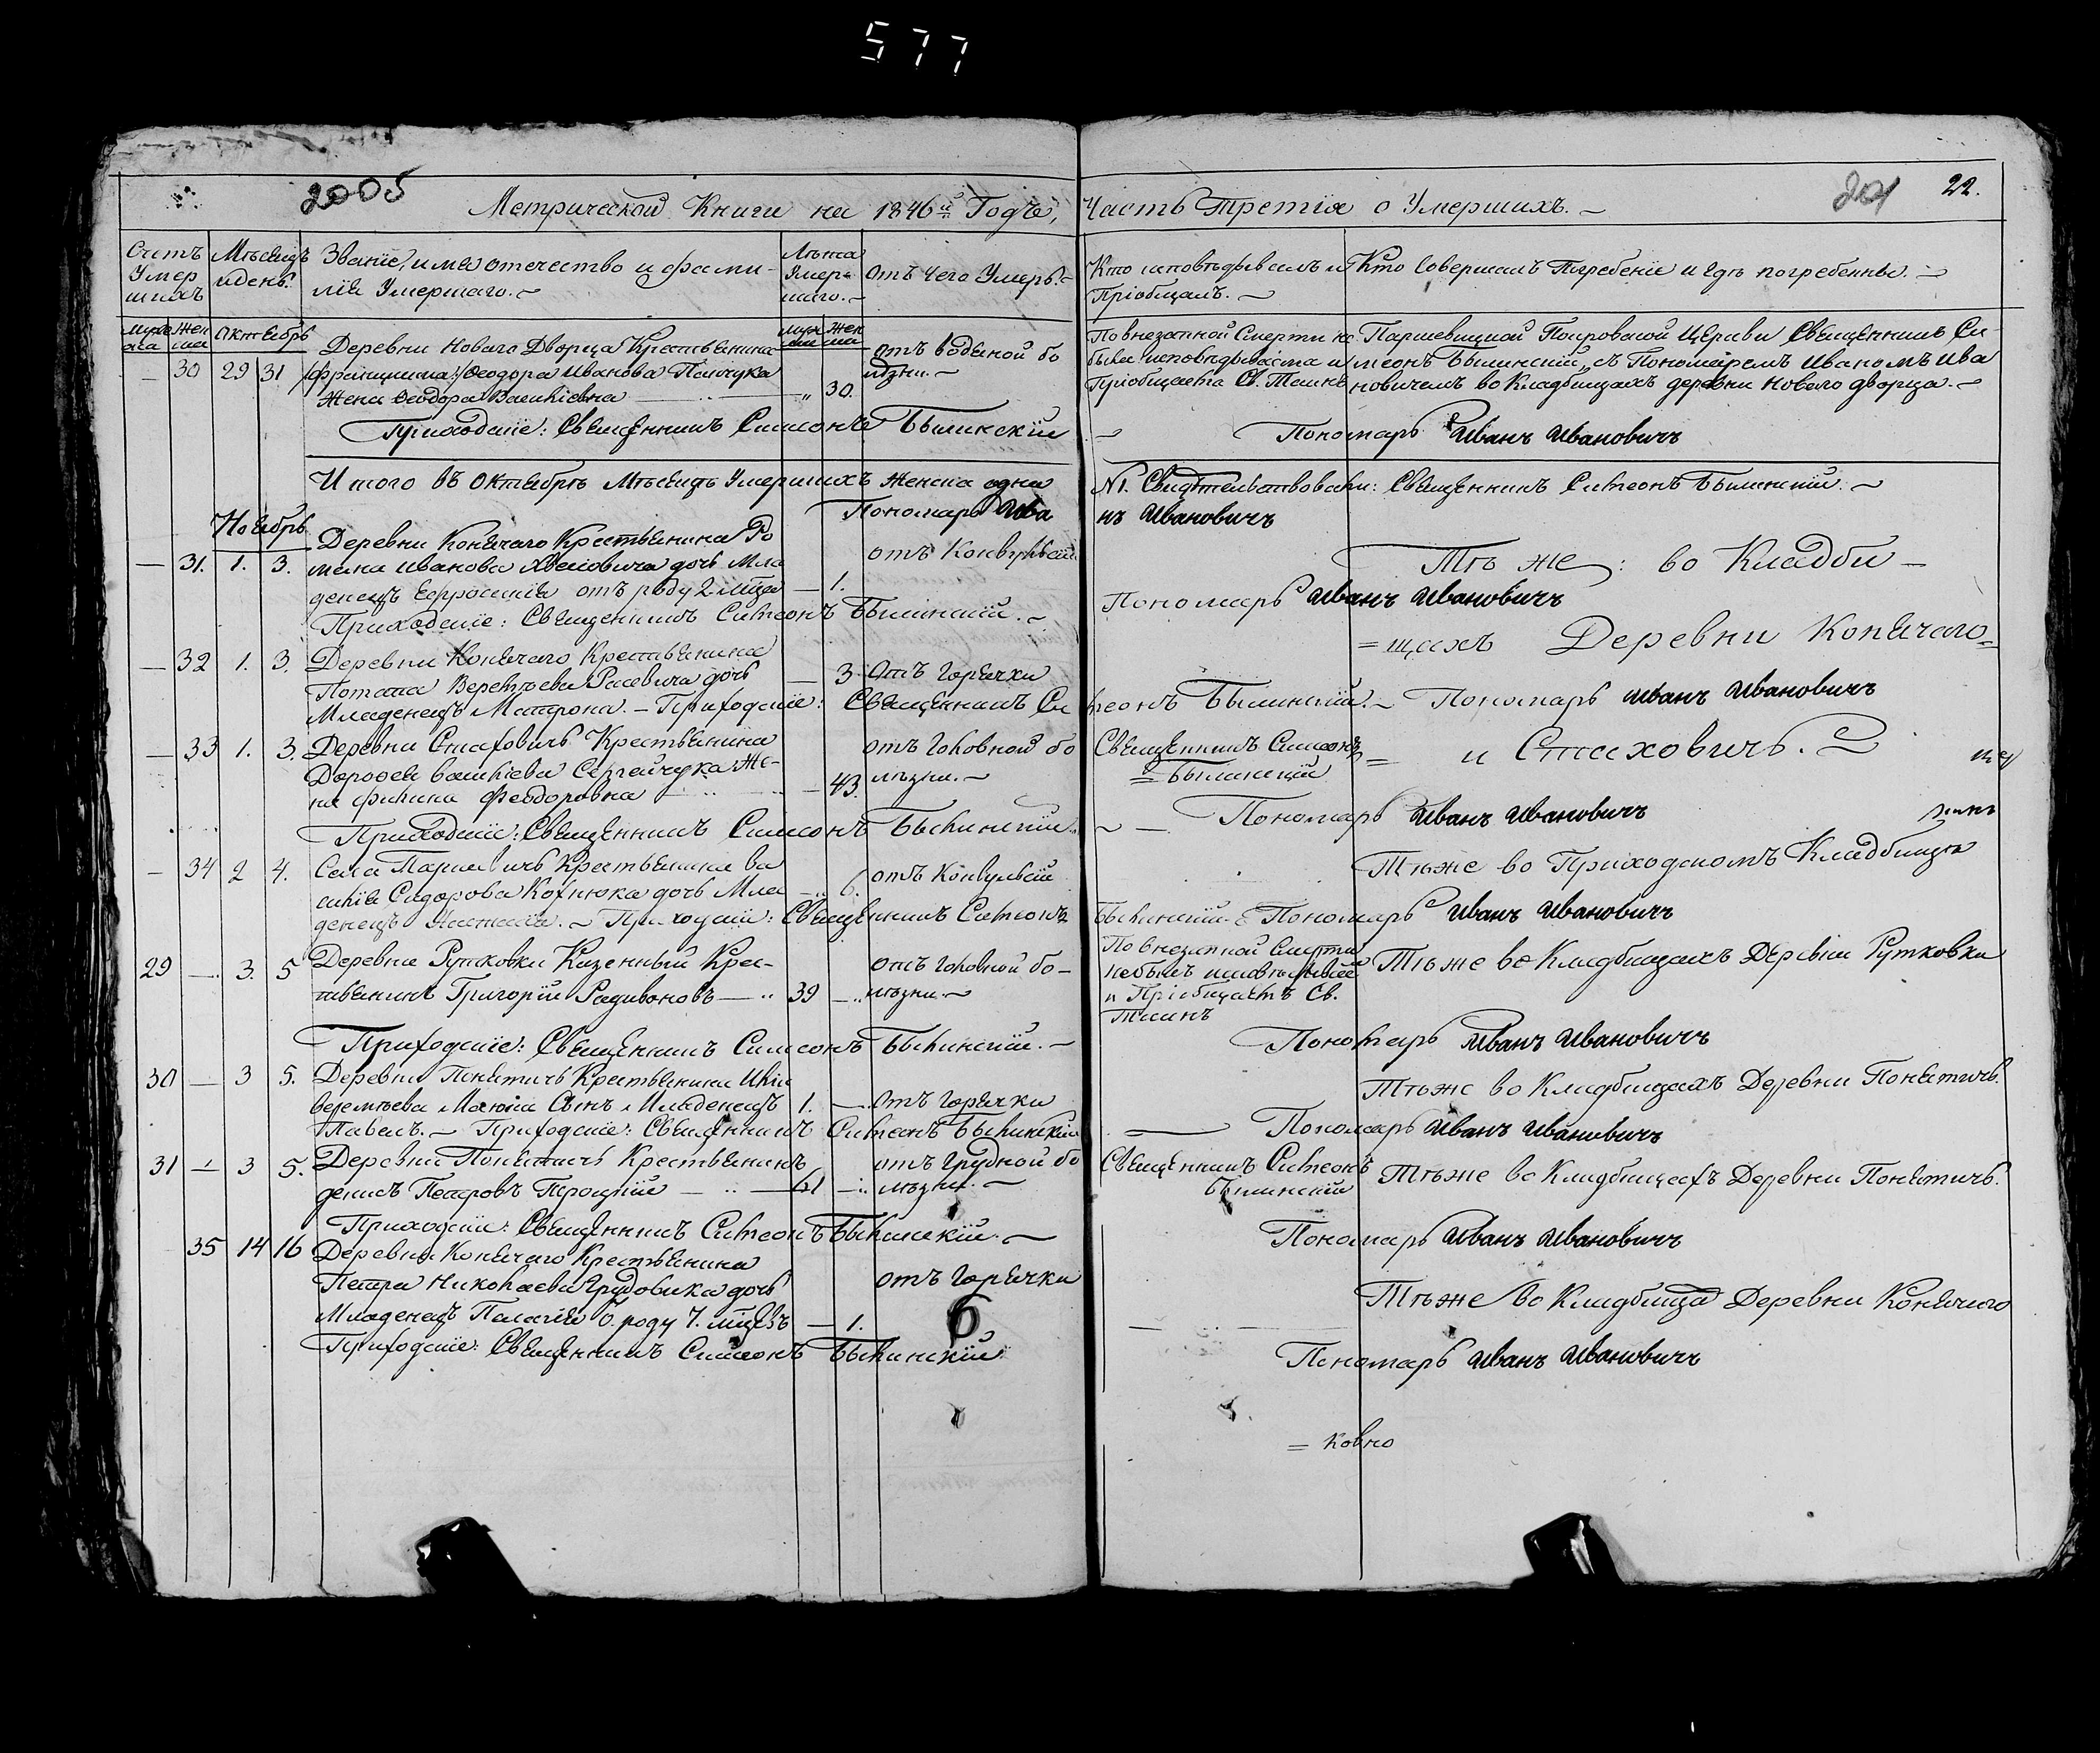 577
2005
Метрической Книги на 1846й Годъ, Часть Третія о Умершихъ.
201
22.
Счетъ Умершихъ
Мѣсяцъ и день.
Званіе, имя отечество и фами-
лія Умершаго.
Лѣта Умершаго.
Отъ чего Умеръ.
Кто исповѣдывалъ и
Пріобщалъ.
Кто Совершалъ Погребеніе и гдѣ погребены.
Муже ска
Жен ска
Октябрь
Муж ска
Жен ска
Деревни Новаго Дворца Крестьянина
Феодора Иванова
Жена Феодора Василіевна
— 30 29 31
„ 30.
отъ водяной бо
лѣзни.
По внезапной Смерти не
была исповѣдываема и
Пріобщаема Св. Таинъ
Паршевицкой Покровской Церкви Священникъ Си
меонъ Былинскій, съ Пономаремъ Иваномъ Ива
новичемъ во Кладбищахъ деревни Новаго дворца.
Приходскіе: Священникъ Симеонъ Былинскій
Пономарь Иванъ Ивановичъ
Итого въ Октябрѣ Мѣсяцѣ Умершихъ женска одна
№1. Свидѣтельствовали: Священникъ Симеонъ Былинскій.
Пономарь Ива
нъ Ивановичъ
Ноябрь
Деревни Конячаго Крестьянина Ро
мана Иванова дочь Мла
денецъ Евфросинія отъ роду 2 мца
— 31. 1. 3.
— 1.
отъ Конвульсій
Тѣ же: во Кладби
Приходскіе: Священникъ Симеонъ Былинскій.
Пономарь Иванъ Ивановичъ
= щахъ Деревни Конячаго
— 32 1. 3.
Деревни Конячаго Крестьянина
Потапа дочь
Младенецъ Матрона. — Приходскіе: Священникъ Си
меонъ Былинскій. Пономарь Иванъ Ивановичъ
— 3
Отъ Горячки
— 33 1. 3.
Деревни Стаховичъ Крестьянина
Дорофея Василіева Сергейчука Же-
на Феодоровна
— 43.
отъ Головной бо
лѣзни.
Священникъ Симеонъ
Былинскій
= и Стаховичъ.
Приходскіе: Священникъ Симеонъ Былинскій.
Пономарь Иванъ Ивановичъ
— 34 2 4.
Села Паршевичъ Крестьянина Ва
силія Сидорова дочь Мла
денецъ Приходскіе: Священникъ Симеонъ
Былинскій. Пономарь Иванъ Ивановичъ
6.
отъ Конвульсій
Тѣ же во Приходскомъ Кладбищѣ
29 — 3. 5
Деревни Рутковки Казенный Крес-
тьянинъ Григорій Радивоновъ
39 —
отъ Головной бо-
лѣзни.
По внезапной Смерти
небылъ
и Пріобщаемъ Св.
Таинъ
Тѣ же во Кладбищахъ Деревни Рутковки
Приходскіе: Священникъ Симеонъ Былинскій.
Пономарь Иванъ Ивановичъ
30 — 3 5.
Деревни Понятичъ Крестьянина Иліи
Сынъ Младенецъ
Павелъ. — Приходскіе: Священникъ Симеонъ Былинскій
1. —
Отъ Горячки
Тѣ же во Кладбищахъ Деревни Понятичъ.
Пономарь Иванъ Ивановичъ
31 — 3 5.
Деревни Понятичъ Крестьянинъ
Денисъ Петровъ Троцкій
61 —
отъ Грудной бо
лѣзни.
Священникъ Симеонъ
Былинскій
Тѣ же во Кладбищахъ Деревни Понятичъ.
Приходскіе: Священникъ Симеонъ Былинскій.
Пономарь Иванъ Ивановичъ
35 14 16
Деревни Конячаго Крестьянина
Петра Николаева дочь
Младенецъ Палагія о. роду 7. мцевъ
— 1.
отъ Горячки
6
Тѣ же во Кладбища Деревни Конячаго
Приходскіе: Священникъ Симеонъ Былинскій
Пономарь Иванъ Ивановичъ
= ковно